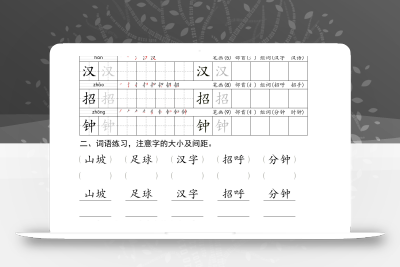 hàn 笔画(5) 部首(氵) 组词(汉字 汉语)
汉 汉 汉 汉
zhāo 笔画(8) 部首(扌) 组词(招呼 招手)
招 招 招 招
zhōng 笔画(9) 部首(钅) 组词(分钟 时钟)
钟 钟 钟 钟
二、词语练习，注意字的大小及间距。
(山坡) (足球) (汉字) (招呼) (分钟)
( ) ( ) ( ) ( ) ( )
山坡 足球 汉字 招呼 分钟